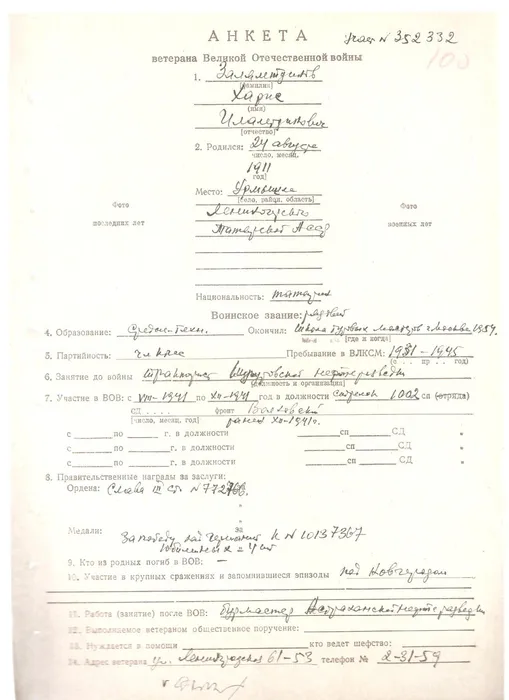 АНКЕТА № 352332
100
ветерана Великой Отечественной войны
1. Залялетдинов
(фамилия)
Харис
(имя)
(отчество)
2. Родился: 24 августа
число, месяц,
1911
год)
Место: Урмышла
(село, район, область)
Лениногорского
Татарской АССР
Фото
последних лет
Фото
военных лет
Национальность: татарин
Воинское звание: рядовой
4. Образование: Средне-техн. Окончил: Школа буровых мастеров г. Москва 1954г.
(где и когда)
5. Партийность: чл КПСС Пребывание в ВЛКСМ: 1931-1945
(с . . пр . . год)
6. Занятие до войны Шугуровской нефтеразведки
(должность и организация)
7. Участие в ВОВ: с VIII-1941 по XII-1941 год в должности стрелок 1002 сп (отряда)
СД . . . . . фронт Волховский
(число, месяц, год) ранен XII-1941г.
с по г. в должности сп СД
с по г. в должности сп СД
с по г. в должности сп СД
8. Правительственные награды за заслуги:
Ордена: Слава III ст. №
за
Медали: За победу над Германией К № 10137367
Юбилейных = 4 шт
9. Кто из родных погиб в ВОВ: —
10. Участие в крупных сражениях и запомнившиеся эпизоды под Новгородом
11. Работа (занятие) после ВОВ: бурмастер Астраханской нефтеразведки
12. Выполняемое ветераном общественное поручение:
13. Нуждается в помощи кто ведет шефство:
14. Адрес ветерана ул. Ленинградская 61-53 телефон № 2-31-59